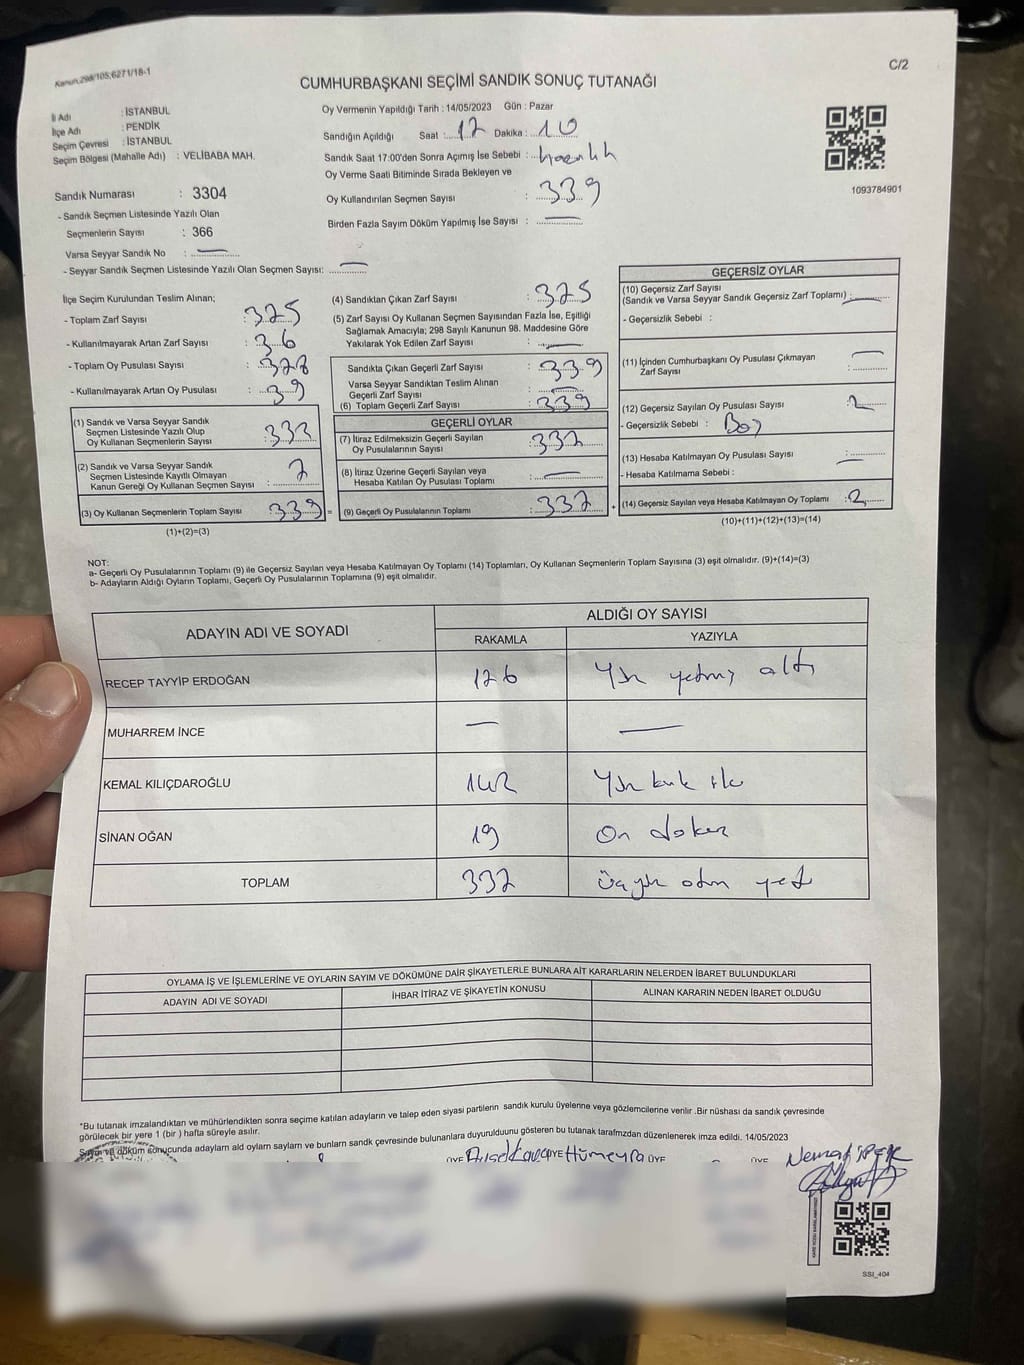 Kanun:298/105;6271/18-1
C/2
CUMHURBAŞKANI SEÇİMİ SANDIK SONUÇ TUTANAĞI
İl Adı : İSTANBUL
İlçe Adı : PENDİK
Seçim Çevresi : İSTANBUL
Seçim Bölgesi (Mahalle Adı) : VELİBABA MAH.
Oy Vermenin Yapıldığı Tarih : 14/05/2023 Gün : Pazar
Sandığın Açıldığı Saat : 17 Dakika : 10
Sandık Saat 17:00'den Sonra Açımış İse Sebebi : hazırlık
Oy Verme Saati Bitiminde Sırada Bekleyen ve
Oy Kullandırılan Seçmen Sayısı : 339
Birden Fazla Sayım Döküm Yapılmış İse Sayısı : —
1093784901
Sandık Numarası : 3304
- Sandık Seçmen Listesinde Yazılı Olan
Seçmenlerin Sayısı : 366
Varsa Seyyar Sandık No : —
- Seyyar Sandık Seçmen Listesinde Yazılı Olan Seçmen Sayısı: —
İlçe Seçim Kurulundan Teslim Alınan;
- Toplam Zarf Sayısı : 375
- Kullanılmayarak Artan Zarf Sayısı : 36
- Toplam Oy Pusulası Sayısı : 378
- Kullanılmayarak Artan Oy Pusulası : 39
(1) Sandık ve Varsa Seyyar Sandık
Seçmen Listesinde Yazılı Olup
Oy Kullanan Seçmenlerin Sayısı :
(2) Sandık ve Varsa Seyyar Sandık
Seçmen Listesinde Kayıtlı Olmayan
Kanun Gereği Oy Kullanan Seçmen Sayısı :
(3) Oy Kullanan Seçmenlerin Toplam Sayısı : 339 =
(1)+(2)=(3)
(4) Sandıktan Çıkan Zarf Sayısı : 375
(5) Zarf Sayısı Oy Kullanan Seçmen Sayısından Fazla İse, Eşitliği
Sağlamak Amacıyla; 298 Sayılı Kanunun 98. Maddesine Göre
Yakılarak Yok Edilen Zarf Sayısı : —
Sandıkta Çıkan Geçerli Zarf Sayısı : 339
Varsa Seyyar Sandıktan Teslim Alınan
Geçerli Zarf Sayısı : —
(6) Toplam Geçerli Zarf Sayısı : 339
GEÇERLİ OYLAR
(7) İtiraz Edilmeksizin Geçerli Sayılan
Oy Pusulalarının Sayısı : 337
(8) İtiraz Üzerine Geçerli Sayılan veya
Hesaba Katılan Oy Pusulası Toplamı : —
(9) Geçerli Oy Pusulalarının Toplamı : 337 +
GEÇERSİZ OYLAR
(10) Geçersiz Zarf Sayısı
(Sandık ve Varsa Seyyar Sandık Geçersiz Zarf Toplamı) : —
- Geçersizlik Sebebi :
(11) İçinden Cumhurbaşkanı Oy Pusulası Çıkmayan
Zarf Sayısı : —
(12) Geçersiz Sayılan Oy Pusulası Sayısı : 2
- Geçersizlik Sebebi : Boş
(13) Hesaba Katılmayan Oy Pusulası Sayısı : —
- Hesaba Katılmama Sebebi :
(14) Geçersiz Sayılan veya Hesaba Katılmayan Oy Toplamı : 2
(10)+(11)+(12)+(13)=(14)
NOT:
a- Geçerli Oy Pusulalarının Toplamı (9) ile Geçersiz Sayılan veya Hesaba Katılmayan Oy Toplamı (14) Toplamları, Oy Kullanan Seçmenlerin Toplam Sayısına (3) eşit olmalıdır. (9)+(14)=(3)
b- Adayların Aldığı Oyların Toplamı, Geçerli Oy Pusulalarının Toplamına (9) eşit olmalıdır.
ADAYIN ADI VE SOYADI ALDIĞI OY SAYISI
RAKAMLA YAZIYLA
RECEP TAYYİP ERDOĞAN 176 Yüz yetmiş altı
MUHARREM İNCE — —
KEMAL KILIÇDAROĞLU 142 Yüz kırk iki
SİNAN OĞAN 19 On dokuz
TOPLAM 337 Üçyüz otuz yedi
OYLAMA İŞ VE İŞLEMLERİNE VE OYLARIN SAYIM VE DÖKÜMÜNE DAİR ŞİKAYETLERLE BUNLARA AİT KARARLARIN NELERDEN İBARET BULUNDUKLARI
ADAYIN ADI VE SOYADI İHBAR İTİRAZ VE ŞİKAYETİN KONUSU ALINAN KARARIN NEDEN İBARET OLDUĞU
*Bu tutanak imzalandıktan ve mühürlendikten sonra seçime katılan adayların ve talep eden siyasi partilerin sandık kurulu üyelerine veya gözlemcilerine verilir .Bir nüshası da sandık çevresinde
görülecek bir yere 1 (bir ) hafta süreyle asılır.
Sayım ve döküm sonucunda adaylarn ald oylarn saylarn ve bunlarn sandk çevresinde bulunanlara duyurulduunu gösteren bu tutanak tarafmzdan düzenlenerek imza edildi. 14/05/2023
ÜYE ÜYE Hümeyra ÜYE ÜYE
SSI_404